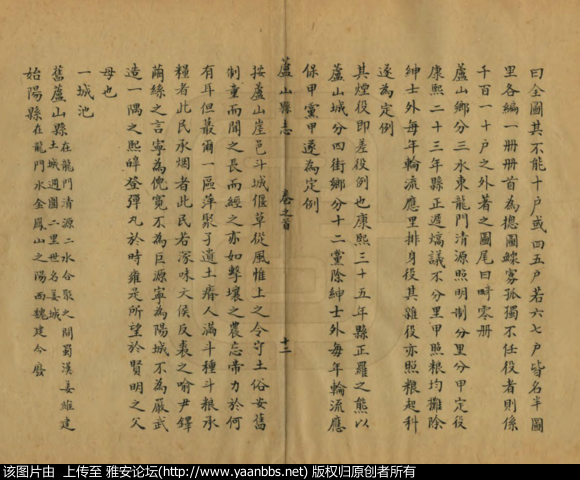 曰全圖其不能十户或四五户若六七户皆名半圖
里各编一册册首為揔圖鰥寡孤獨不任役者則係
千百一十户之外著之圖尾曰畸零册
蘆山鄉分三水東龍門清源照明制分里分甲定役
康熙二十三年縣正遲熇議不分里甲照粮均攤除
紳士外每年輪流應里排身役其雜役亦照粮起科
遂為定例
其煙役即差役例也康熙三十五年縣正羅之熊以
蘆山城分四街鄉分十二黨除紳士外每年輪流應
保甲黨甲遂為定例
蘆山縣志 卷之首 十二
按蘆山崖邑斗城偃草從風惟上之令守土俗安舊
制童而閭之長而經之亦如擊壤之農忘帝力於何
有耳但蕞爾一區萍聚子遺土瘠人满斗種斗粮承
糧者此民永烟者此民若深味文侯反裘之喻尹鐸
繭絲之言寧為倪寬不為巨源寧為陽城不為嚴武
造一隅之熙皥登彈丸於時雍是所望於賢明之父
母也
一城池
舊蘆山縣 在龍門清源二水合聚之間蜀漢姜維建
土城週圍二里世名姜城
始陽縣 在龍門水金鳳山之陽西魏建今廢
该图片由 上传至 雅安论坛(http://www.yaanbbs.net) 版权归原创者所有